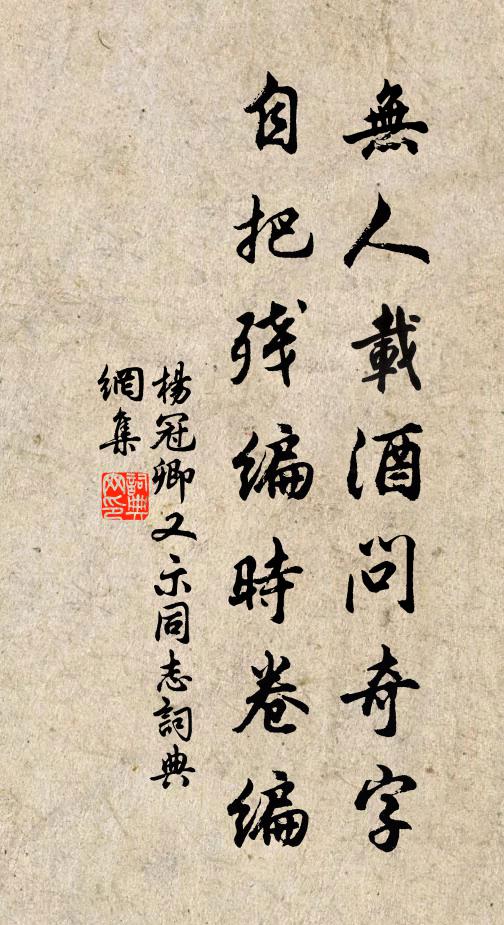 無人載酒問奇字
自把殘編時卷編
楊冠卿又示同志詞典
網集
詞典
網印